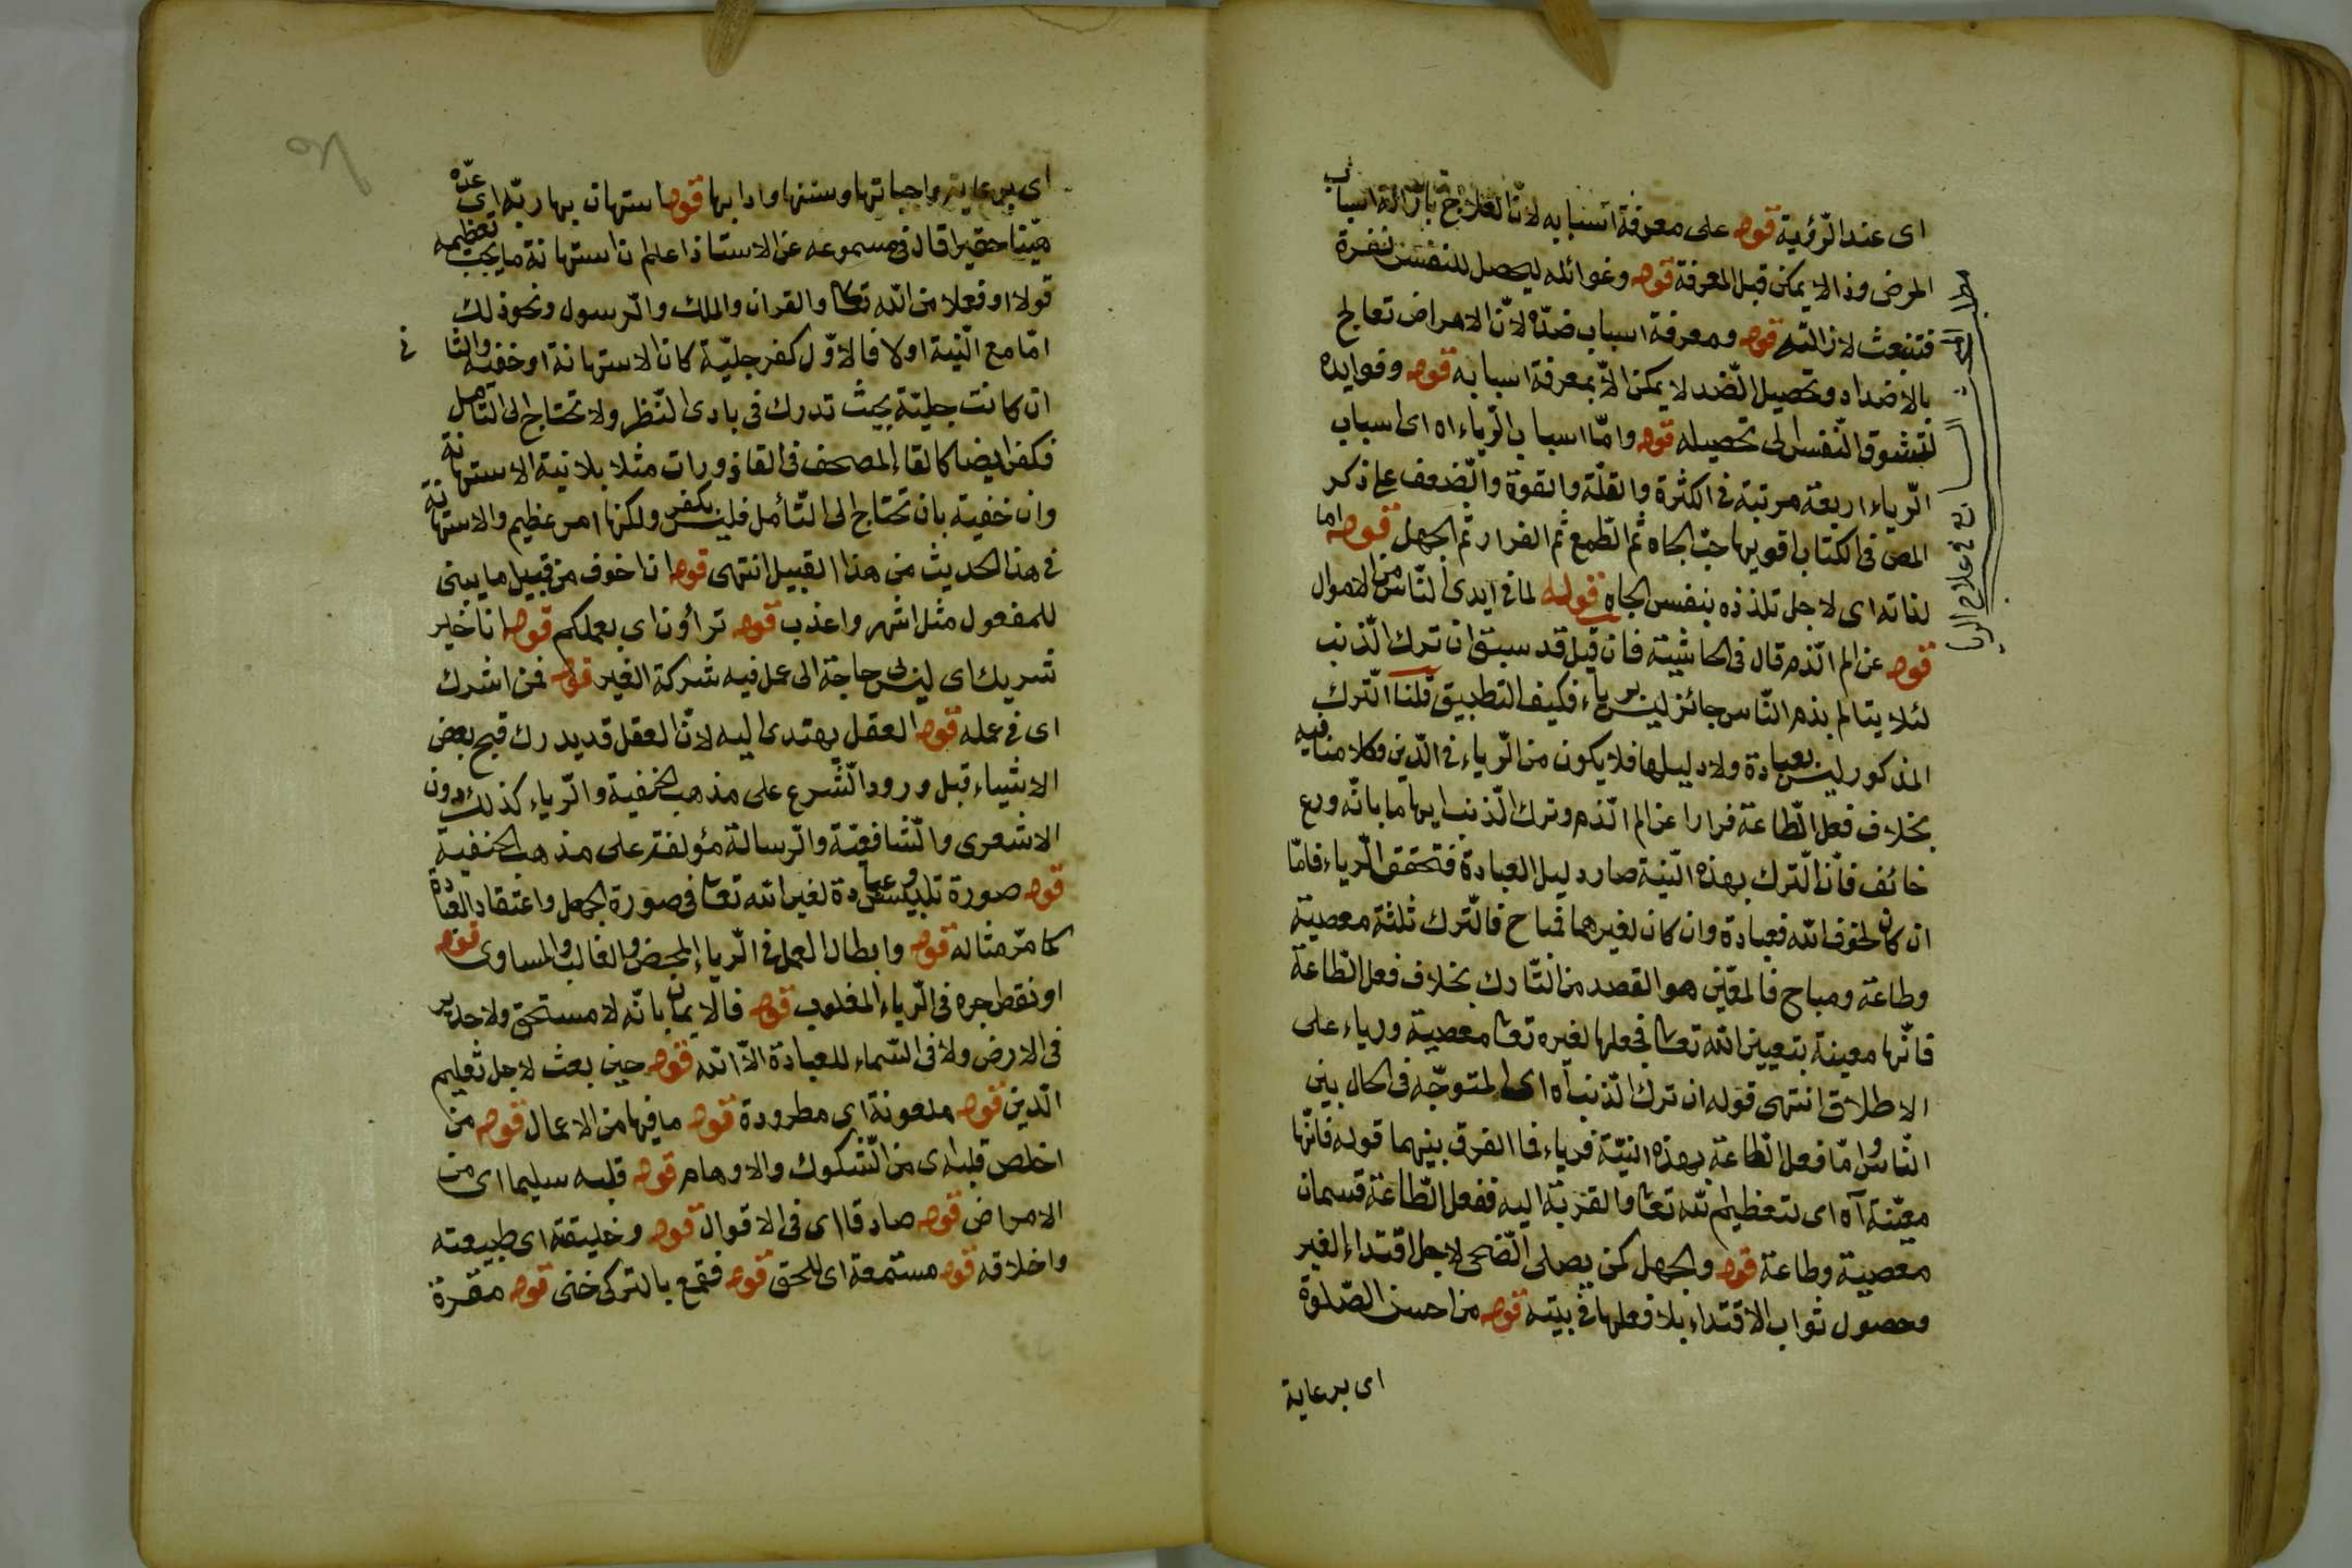 اى عند الرؤية قوله على معرفة اسبابه لانّ العلاج بازالة اسباب
المرض وذا لا يمكن قبل المعرفة قوله وغوائله ليحصل للنفس نفرة
فتنبعث لازالته قوله ومعرفة اسباب ضدّه لانّ الامراض تعالج
بالاضداد وتحصيل الضد لا يمكن الاّ بمعرفة اسبابه قوله وفوايده
لتشوق النّفس الى تحصيله قوله وامّا اسباب الرّياء اه اى اسباب
الرّياء اربعة مرتبة فى الكثرة والقلّة والقوة والضعف على ذكر
المص فى الكتاب اقويها حبّ الجاه ثم الطّمع ثم الفرار ثم الجهل قوله اما
لذاته اى لاجل تلذذه بنفس الجاه قوله لما فى ايدى النّاس من الاموال
قوله عن الم الذّم قال فى الحاشية فان قيل قد سبق ان ترك الذّنب
لئلا يتالم بذم النّاس جائز ليس برياء فكيف التطبيق قلنا التّرك
المذكور ليس بعبادة ولا دليلها فلا يكون من الرّياء فى الدّين وكلامنا فيه
بخلاف فعل الطّاعة فرارا عن الم الذّم وترك الذّنب ايهاما بانّه ورع
خائف فانّ التّرك بهذه النّية صار دليل العبادة فتحقق الرّياء فامّا
ان كان لخوف الله فعبادة وان كان لغيرهما فمباح فالتّرك ثلثة معصية
وطاعة ومباح فالمعيّن هو القصد من التّارك بخلاف فعل الطّاعة
فانّها معينة بتعيين الله تعا فجعلها لغيره تعا معصية ورياء على
الاطلاق انتهى قوله ان ترك الذّنب آه اى المتوجّه فى الحال بين
النّاس وامّا فعل الطّاعة بهذه النيّة فرياء فما الفرق بينهما قوله فانّها
معيّنة آه اى لتعظيم لله تعا والقربة اليه ففعل الطّاعة قسمان
معصية وطاعة قوله والجهل كمن يصلى الضّحى لاجل اقتداء الغير
وحصول ثواب الاقتداء بلا فعلها فى بيته قوله من احسن الصّلوة
اى برعاية
اى برعاية واجباتها وسننها وادابها قوله استهان بها ربّه اى عدّه
هيّنا حقيرا قال فى مسموعه عن الاستاذ اعلم ان استهانة ما يجب تعظيمه
قولا او فعلا من الله تعا والقران والملك والرّسول ونحو ذلك
امّا مع النّية اولا فالاوّل كفر جليّة كان الاستهانة او خفيه والثا
نى
ان كانت جليّة بحيث تدرك فى بادى النّظر ولا تحتاج الى التأمل
فكفر ايضا كالقاء المصحف فى القاذورات مثلا بلا نية الاستهانة
وان خفية بان تحتاج الى التّأمل فليس بكفر ولكنها امر عظيم والاستهانة
فى هذا الحديث من هذا القبيل انتهى قوله ان اخوف من قبيل ما يبنى
للمفعول مثل اشهر واعذب قوله تراؤن اى بعملكم قوله انا خير
شريك اى ليس لى حاجة الى عمل فيه شركة الغير قوله فمن اشرك
اى فى عمله قوله العقل يهتدى اليه لانّ العقل قد يدرك قبح بعض
الاشياء قبل ورود الشّرع على مذهب الحنفية والرّياء كذلك دون
الاشعرى والشّافعيّة والرّسالة مؤلفة على مذهب الحنفية
قوله صورة تلبيس وعبادة لغير الله تعا فى صورة الجهل واعتقاد العبادة
كما مرّ مثاله قوله وابطال العمل فى الرّياء المحض والغالب والمساوى قوله
او نقط جره فى الرّياء المغلوب قوله فالايمان بانّه لا مستحق ولا جدير
فى الارض ولا فى السّماء للعبادة الاّ الله قوله حين بعث لاجل تعليم
الدّين قوله ملعونة اى مطرودة قوله ما فيها من الاعمال قوله من
اخلص قلبه اى من الشّكوك والاوهام قوله قلبه سليما اى من
الامراض قوله صادقا اى فى الاقوال قوله وخليقة اى طبيعته
واخلاقه قوله مستمعة اى للحق قوله فقمع بالتركى خنى قوله مقرة